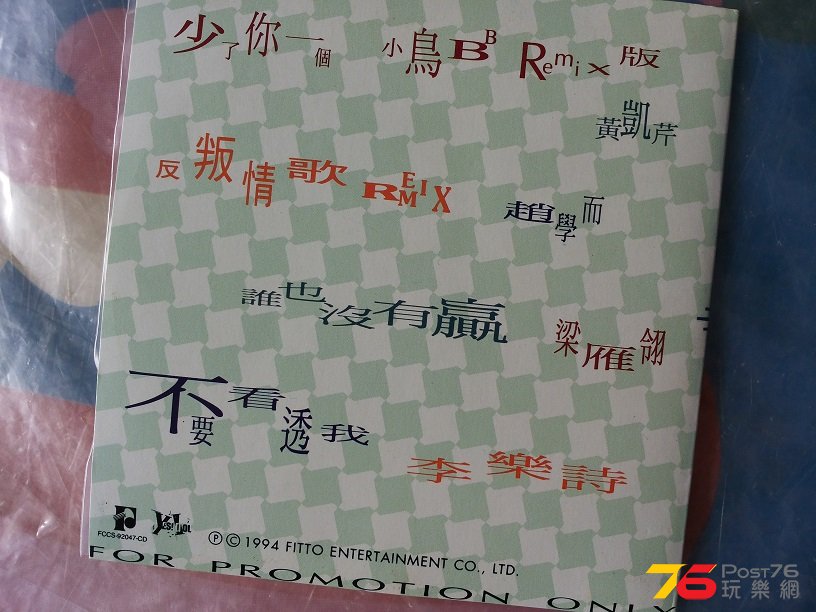 少了你一個 小鳥BB Remix版
黃凱芹
反叛情歌 REMIX
趙學而
誰也沒有贏
梁雁翎
不要看透我
李樂詩
FCCS-92047-CD
ⓅⒸ 1994 FITTO ENTERTAINMENT CO., LTD.
FOR PROMOTION ONLY
76 POST76
玩樂網